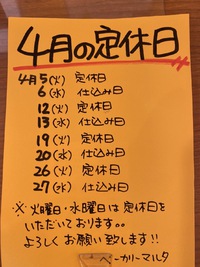 4月の定休日
4月5(火) 定休日
6(水) 仕込み日
12(火) 定休日
13(水) 仕込み日
19(火) 定休日
20(水) 仕込み日
26(火) 定休日
27(水) 仕込み日
※火曜日・水曜日は定休日を
いただいております。。
よろしくお願い致します!!
ベーカリーマルタ